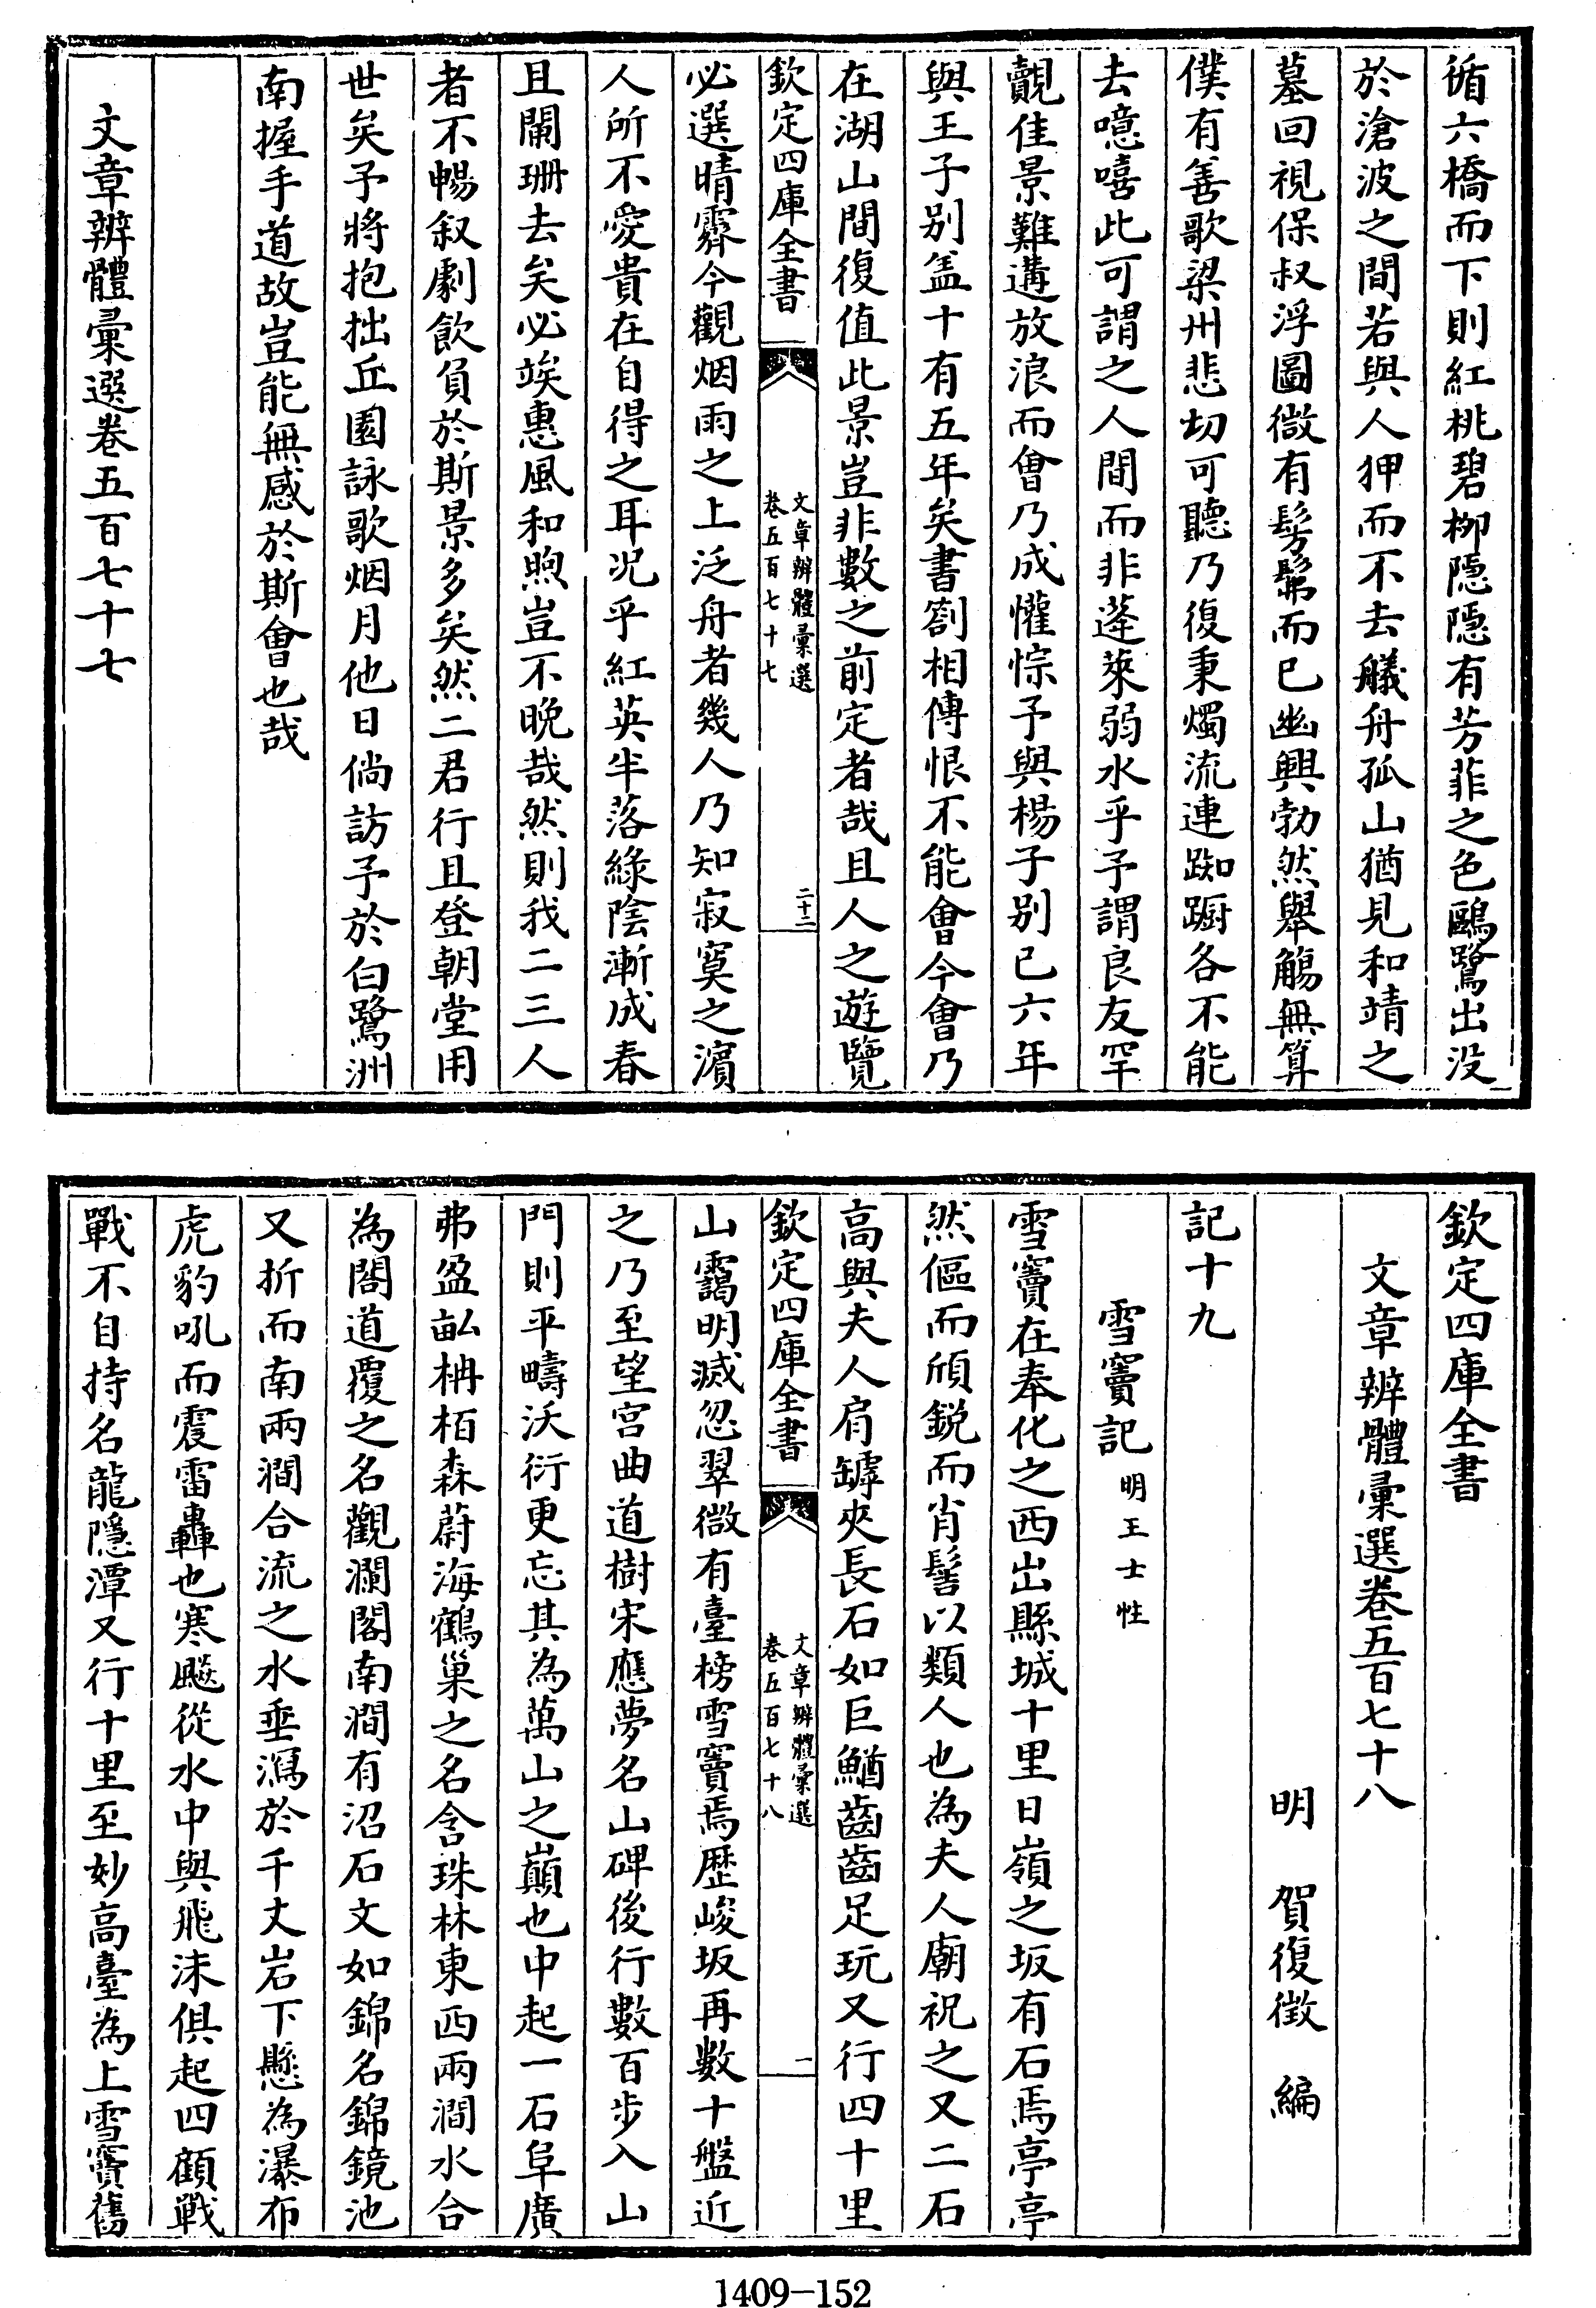 循六橋而下則紅桃碧栁隠隠有芳菲之色鷗鷺出没
於滄波之間若與人狎而不去艤舟孤山猶見和靖之
墓回視保叔浮圖微有髣髴而已幽興勃然舉觴無算
僕有善歌梁州悲切可聽乃復秉燭流連踟蹰各不能
去噫嘻此可謂之人間而非蓬萊弱水乎予謂良友罕
覿佳景難遘放浪而會乃成懽悰予與楊子别已六年
與王子别葢十有五年矣書劄相傳恨不能會今會乃
在湖山間復值此景豈非數之前定者哉且人之遊覽
欽定四庫全書
文章辨體彚選
卷五百七十七
二十二
必選晴霽今觀烟雨之上泛舟者幾人乃知寂寞之濵
人所不愛貴在自得之耳况乎紅英半落綠陰漸成春
且闌珊去矣必竢惠風和煦豈不晚哉然則我二三人
者不暢叙劇飲負於斯景多矣然二君行且登朝堂用
世矣予將抱拙丘園詠歌烟月他日倘訪予於白鷺洲
南握手道故豈能無感於斯會也哉
文章辨體彚選卷五百七十七
欽定四庫全書
文章辨體彚選卷五百七十八
明 賀復徴 編
記十九
雪竇記 明王士性
雪竇在奉化之西出縣城十里日嶺之坂有石焉亭亭
然傴而頎鋭而肖髻以類人也為夫人廟祝之又二石
高與夫人肩罅夾長石如巨鰌齒齒足玩又行四十里
欽定四庫全書
文章辨體彚選
卷五百七十八
一
山靄明滅忽翠微有臺榜雪竇焉歴峻坂再數十盤近
之乃至望宫曲道樹宋應夢名山碑後行數百步入山
門則平疇沃衍更忘其為萬山之巔也中起一石阜廣
弗盈畆柟栢森蔚海鶴巢之名含珠林東西兩澗水合
為閣道覆之名觀瀾閣南澗有沼石文如錦名錦鏡池
又折而南兩澗合流之水垂瀉於千丈岩下懸為瀑布
虎豹吼而震雷轟也寒飈從水中與飛沫俱起四顧戰
戰不自持名龍隱潭又行十里至妙高臺為上雪竇舊
1409-152